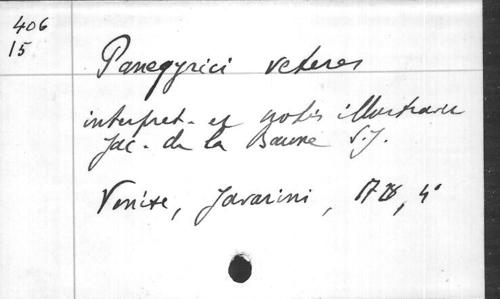 406
15
Panegyrici veteres
interpret. et notis illustravit
Jac. de la Baune S.J.
Venise, Javarini, 1728, 4°